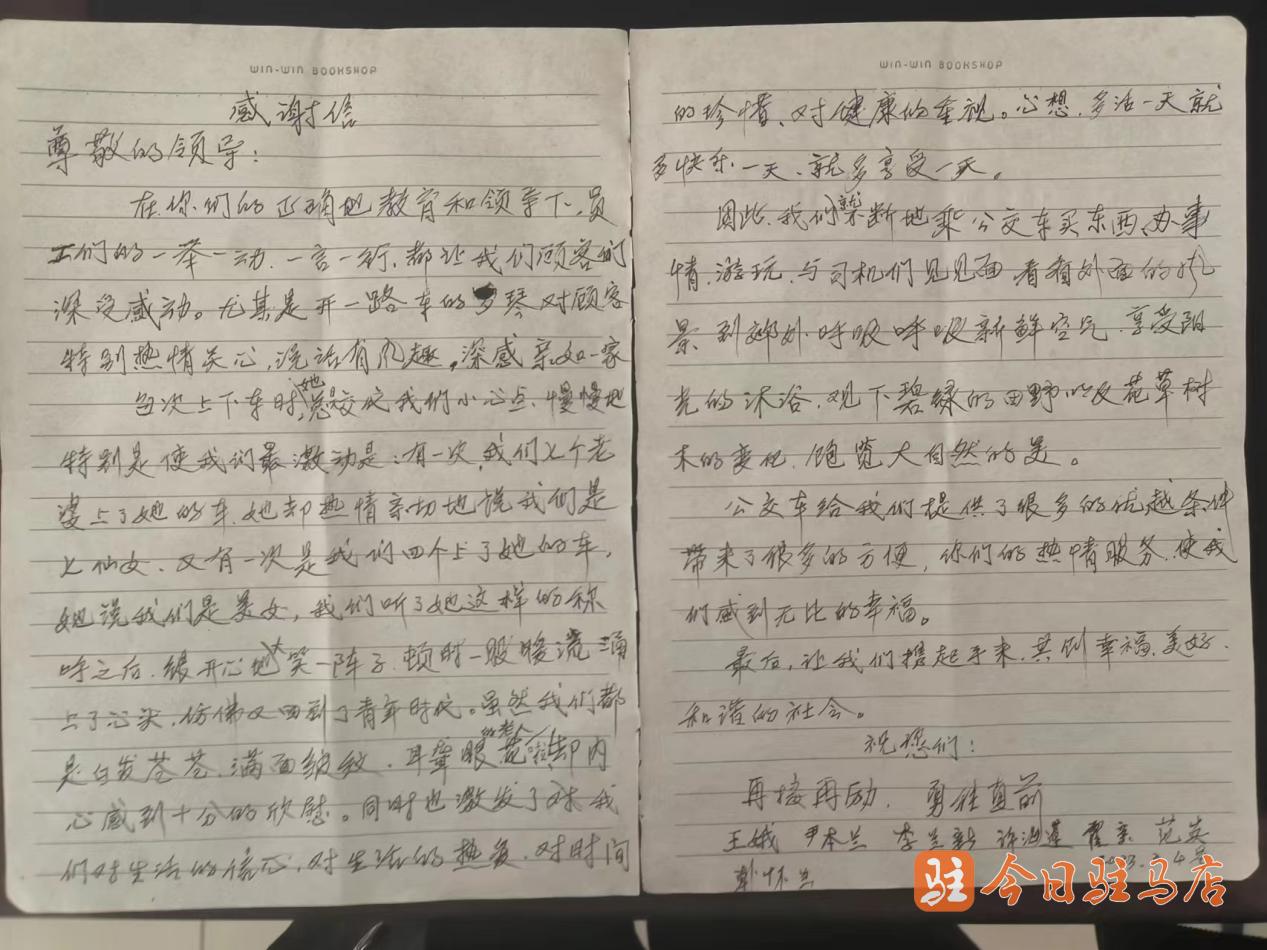 WIN-WIN BOOKSHOP
感谢信
尊敬的领导：
在你们的正确地教育和领导下，员
工们的一举一动、一言一行，都让我们顾客们
深受感动。尤其是开一路车的罗琴对顾客
特别热情关心，说话有风趣，深感亲如一家
每次上下车时，她总交代我们小心点、慢慢地
特别是使我们最激动是：有一次，我们七个老
婆上了她的车，她却热情亲切地说我们是
七仙女，又有一次是我们四个上了她的车，
她说我们是美女，我们听了她这样的称
呼之后，开心地大笑一阵子，顿时一股暖流涌
上了心头，仿佛又回到了青年时代。虽然我们都
是白发苍苍，满面皱纹，耳聋眼花的老人，却内
心感到十分的欣慰。同时也激发了对我
们对生活的信心，对生活的热爱，对时间
WIN-WIN BOOKSHOP
的珍惜、对健康的重视。心想，多活一天就
多快乐一天、就多享受一天。
因此，我们就不断地乘公交车买东西、办事
情、游玩，与司机们见见面，看看外面的风
景，到郊外呼吸呼吸新鲜空气，享受阳
光的沐浴，观下碧绿的田野以及花草树
木的变化，饱览大自然的美。
公交车给我们提供了很多的优越条件
带来了很多的方便，你们的热情服务，使我
们感到无比的幸福。
最后，让我们携起手来，共创幸福、美好、
和谐的社会。
祝您们：
再接再励，勇往直前
王娥 尹本兰 李兰 范英
怀兰
驻 今日驻马店